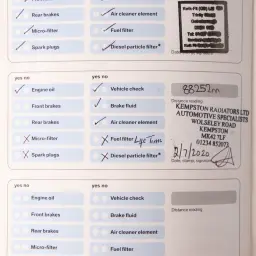 Rear brakes
Air cleaner element
Micro-filter
Fuel filter
Spark plugs
Diesel particle filter*
yes no
yes no
Engine oil
Vehicle check
88252
Distance reading
Front brakes
Brake fluid
KEMPSTON RADIATORS LTD
AUTOMOTIVE SPECIALISTS
WOLSELEY ROAD
KEMPSTON
MK42 7LF
01234 852073
Rear brakes
Air cleaner element
Micro-filter
Fuel filter
Spark plugs
Diesel particle filter*
2/7/2020
Date, stamp, signature
yes no
yes no
Engine oil
Vehicle check
Front brakes
Brake fluid
Distance reading
Rear brakes
Air cleaner element
Micro-filter
Fuel filter